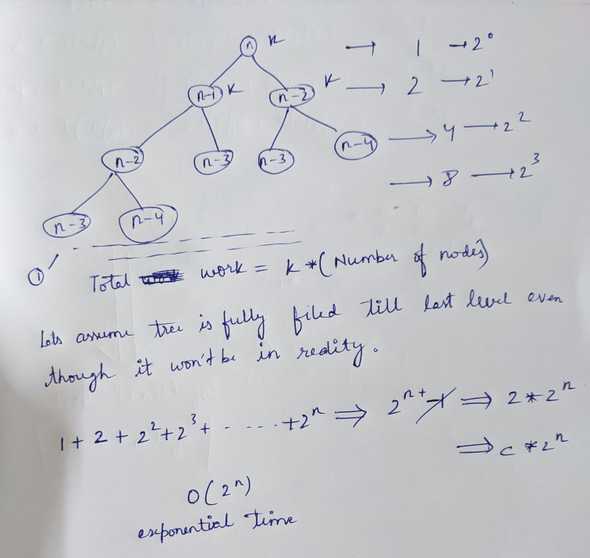 n k → 1 → 2⁰
n-1 k n-2 k → 2 → 2¹
n-2 n-3 n-3 n-4 → 4 → 2²
→ 8 → 2³
n-3 n-4
1
Total work = k * (Number of nodes)
Lets assume tree is fully filed till last level even
though it won't be in reality.
1 + 2 + 2² + 2³ + - - - - - + 2ⁿ ⇒ 2ⁿ⁺ -1 ⇒ 2 * 2ⁿ
⇒ c * 2ⁿ
O(2ⁿ)
exponential time